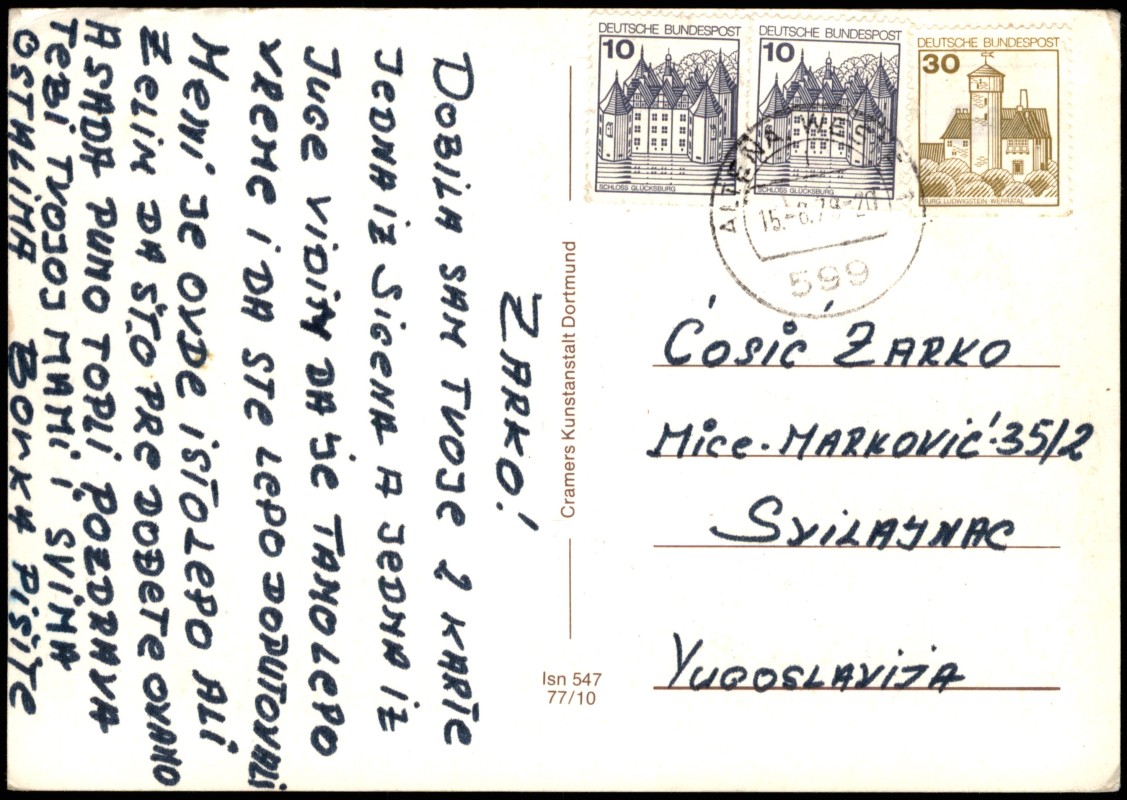 ŽARKO!
DOBILA SAM TVOJE 2 KARTE
JEDNA IZ SIGENA A JEDNA IZ
JUGE VIDIM DA JE TAMO LEPO
VREME I DA STE LEPO DOPUTOVALI
MENI JE OVDE ISTO LEPO ALI
ZELIM DA ŠTO PRE DOĐETE OVAMO
A SADA PUNO TOPLI POZDRAVA
TEBI TVOJOJ MAMI I SVIMA
OSTALIMA BORKA PIŠITE
Cramers Kunstanstalt Dortmund
Isn 547
77/10
DEUTSCHE BUNDESPOST
10
SCHLOSS GLÜCKSBURG
DEUTSCHE BUNDESPOST
10
SCHLOSS GLÜCKSBURG
DEUTSCHE BUNDESPOST
30
BURG LUDWIGSTEIN WERRATAL
ALTENA
15.-8.79-20
599
ĆOSIĆ ŽARKO
MICE-MARKOVIĆ 35/2
SVILAJNAC
YUGOSLAVIJA